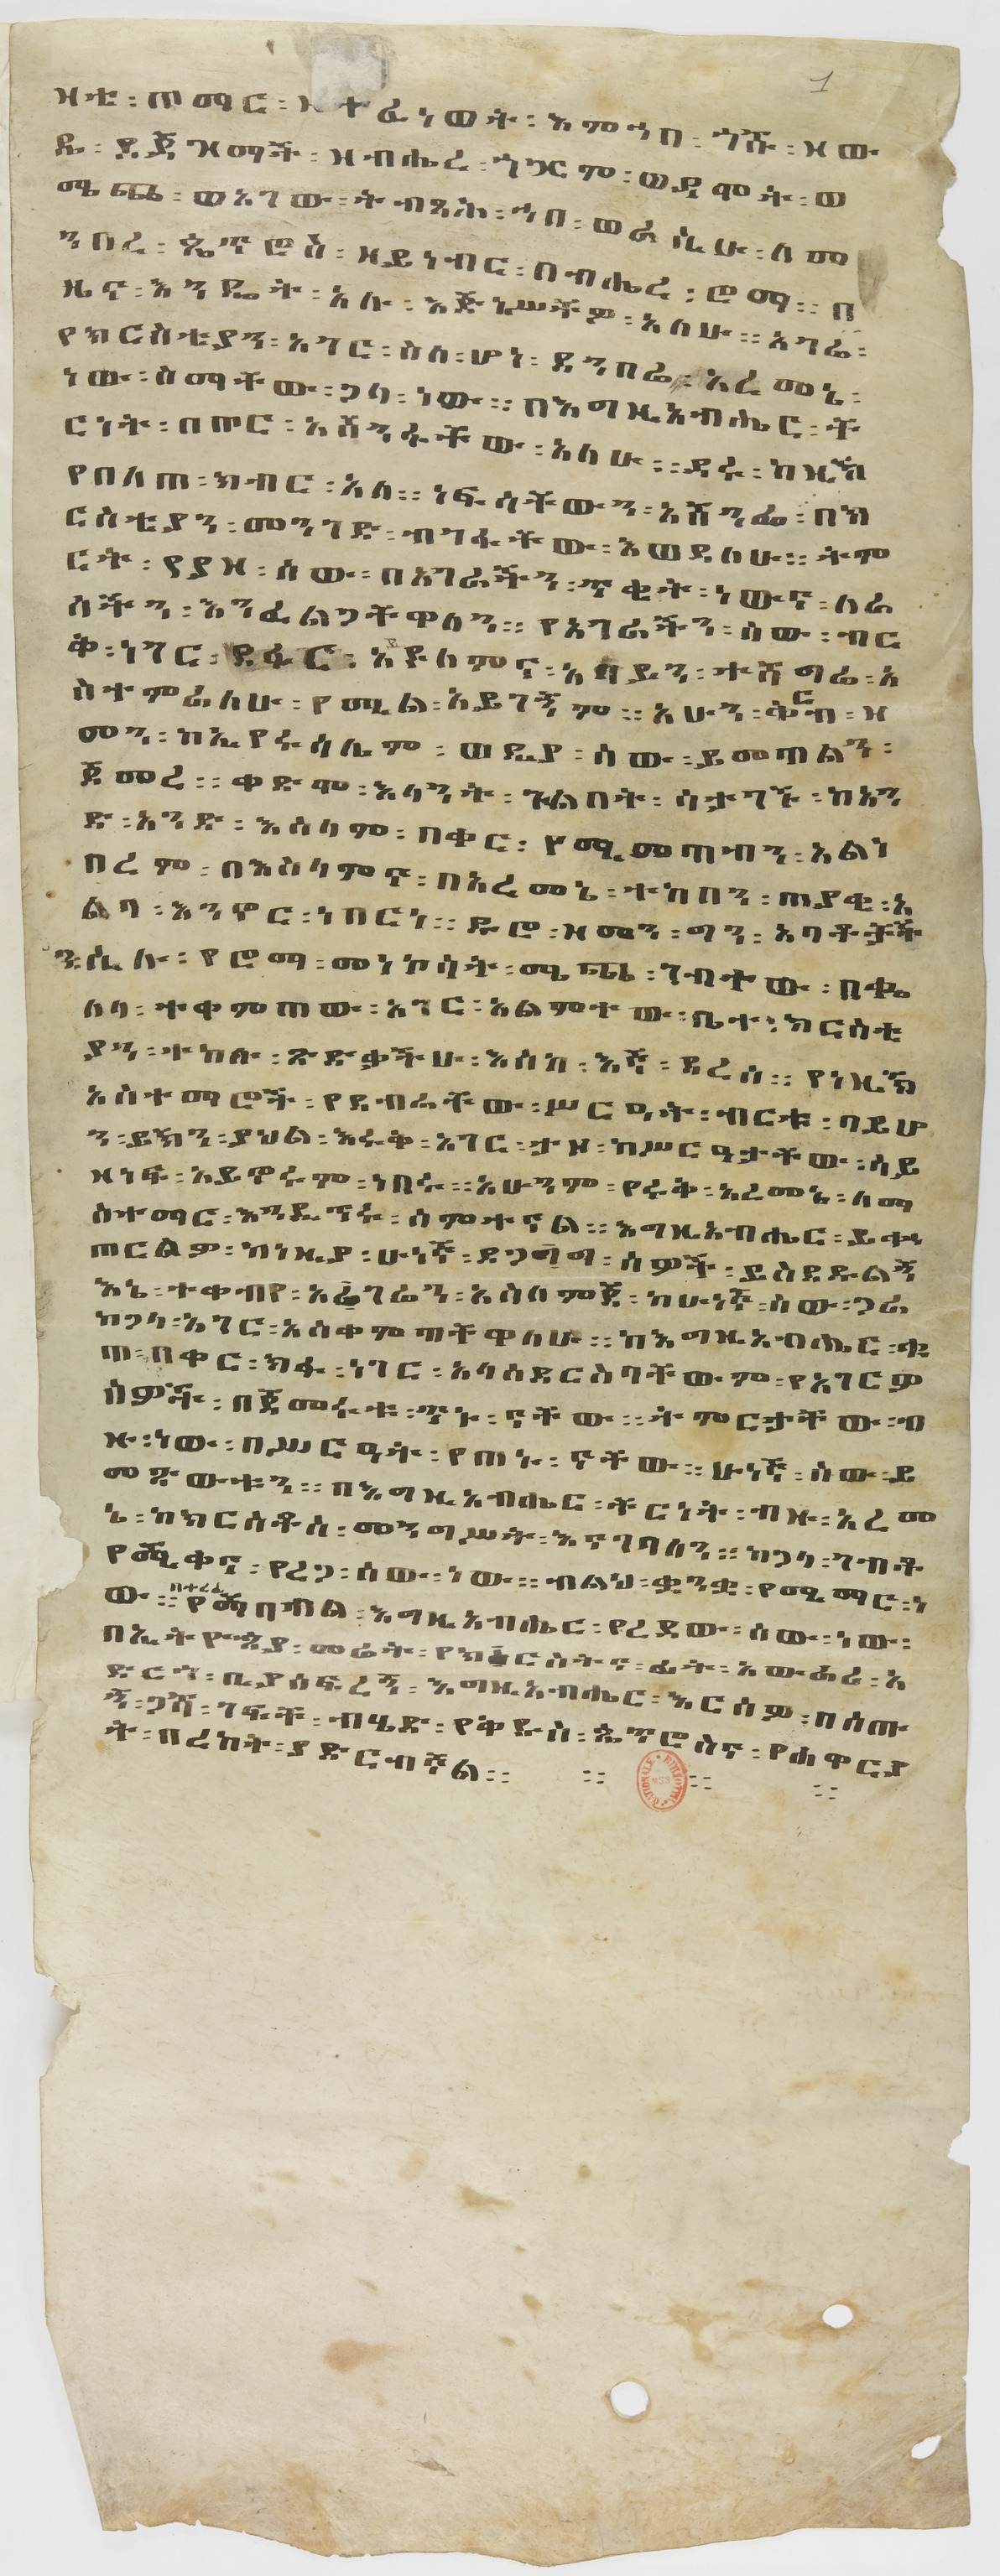 1
ዛቲ፡ጦማር፡ዘተፈነወት፡እምኀበ፡ጎሹ፡ዘው
ዱ፡ደጃዝማች፡ዘብሔረ፡ጎዣም፡ወዳሞት፡ወ
ሜጫ፡ወአገው፡ትብጻሕ፡ኀበ፡ወራሲሁ፡ለመ
ንበረ፡ጴጥሮስ፡ዘይነብር፡በብሔረ፡ሮማ፡፡በ
ዜና፡እንዴት፡አሉ፡እጅ፡አለሁ፡፡አገሬ፡
የክርስቲያን፡አገር፡ስለ፡ሆነ፡ደንበሬ፡አረመኔ፡
ነው፡ስማቸው፡ጋላ፡ነው፡፡በእግዚአብሔር፡ቸ
ርነት፡በጦር፡አሸንፋቸው፡አለሁ፡፡ዳሩ፡ከዚኽ
የበለጠ፡ክብር፡አለ፡፡ነፍሳቸውን፡አሸንፌ፡በክ
ርስቲያን፡መንገድ፡ብገፋቸው፡እወዳለሁ፡፡ትም
ርት፡የያዘ፡ሰው፡በአገራችን፡ጥቂት፡ነውና፡ለራ
ሳችን፡እንፈልጋቸዋለን፡፡የአገራችን፡ሰው፡ብር
ቅ፡ነገር፡ደፋር፡አይ፡ተሻግሬ፡አ
ስተምራለሁ፡የሚል፡አይገኝም፡፡አሁን፡ቅርብ፡ዘ
መን፡ከኢየሩሳሌም፡ወዲያ፡ሰው፡ይመጣልን፡
ጀመረ፡፡ቀድሞ፡እላንት፡ጉልበት፡ሳታገኙ፡ከአን
ድ፡አንድ፡እስላም፡በቀር፡የሚመጣብን፡አልነ
በረም፡በእስላምና፡በአረመኔ፡ተከበን፡ጠያቂ፡አ
ልባ፡እንኖር፡ነበርነ፡፡ድሮ፡ዘመን፡ግን፡አባቶቻች
ን፡ሲሉ፡የሮማ፡መነኮሳት፡ሜጫ፡ገብተው፡በቄ
ለላ፡ተቀምጠው፡አገር፡አልምተው፡ቤተ፡ክርስቲ
ያን፡ተከሉ፡ጽድቃችሁ፡እስከ፡እኛ፡ደረሰ፡፡የነዚኽ
አስተማሮች፡የደብራቸው፡ሥርዓት፡ብርቱ፡ባይሆ
ን፡ይኽን፡ያህል፡እሩቅ፡አገር፡ታዞ፡ከሥርዓታቸው፡ሳይ
ዘነፍ፡አይኖሩም፡ነበሩ፡፡አሁንም፡የሩቅ፡አረመኔ፡ለማ
ስተማር፡እንዲኖሩ፡ሰምተናል፡፡እግዚአብሔር፡ይቁ
ጠርልዎ፡ከነዚያ፡ሁነኛ፡ደጋግ፡ሰዎች፡ይስደዱልኝ
እኔ፡ተቀብየ፡አሬገሬን፡አሰለምጄ፡ከሁነኛ፡ሰው፡ጋራ
ከጋላ፡አገር፡አስቀምጣቸዋለሁ፡፡ከእግዚአብሔር፡ቁ
ጣ፡በቀር፡ክፋ፡ነገር፡አላስደርስባቸውም፡የአገርዎ
ሰዎች፡በጀመሩቱ፡ጥኑ፡ናቸው፡፡ትምርታቸው፡ብ
ዙ፡ነው፡በሥርዓት፡የጠኑ፡ናቸው፡፡ሁነኛ፡ሰው፡ይ
መጽውቱን፡፡በእግዚአብሔር፡ቸርነት፡ብዙ፡አረመ
ኔ፡ከክርስቶስ፡መንግሥት፡እናገባለን፡፡ከጋላ፡ገብቶ
የሚቀና፡የረጋ፡ሰው፡ነው፡፡ብልህ፡ቋንቋ፡የሚማር፡ነ
ው፡፡በተረፈ
እግዚአብሔር፡የረዳው፡ሰው፡ነው፡
በኢትዮጵያ፡መሬት፡የክርስትና፡ፊት፡አውሐራ፡አ
ድርጎ፡ቢያሰፍረኝ፡እግዚአብሔር፡እርስዎ፡በሰጡ
ኝ፡ጋሻ፡ገፍቸ፡ብሄድ፡የቅዱስ፡ጴጥሮስና፡የሐዋርያ
ት፡በረከት፡ያድርብኛል፡፡ ፡፡ ፡፡ ፡፡